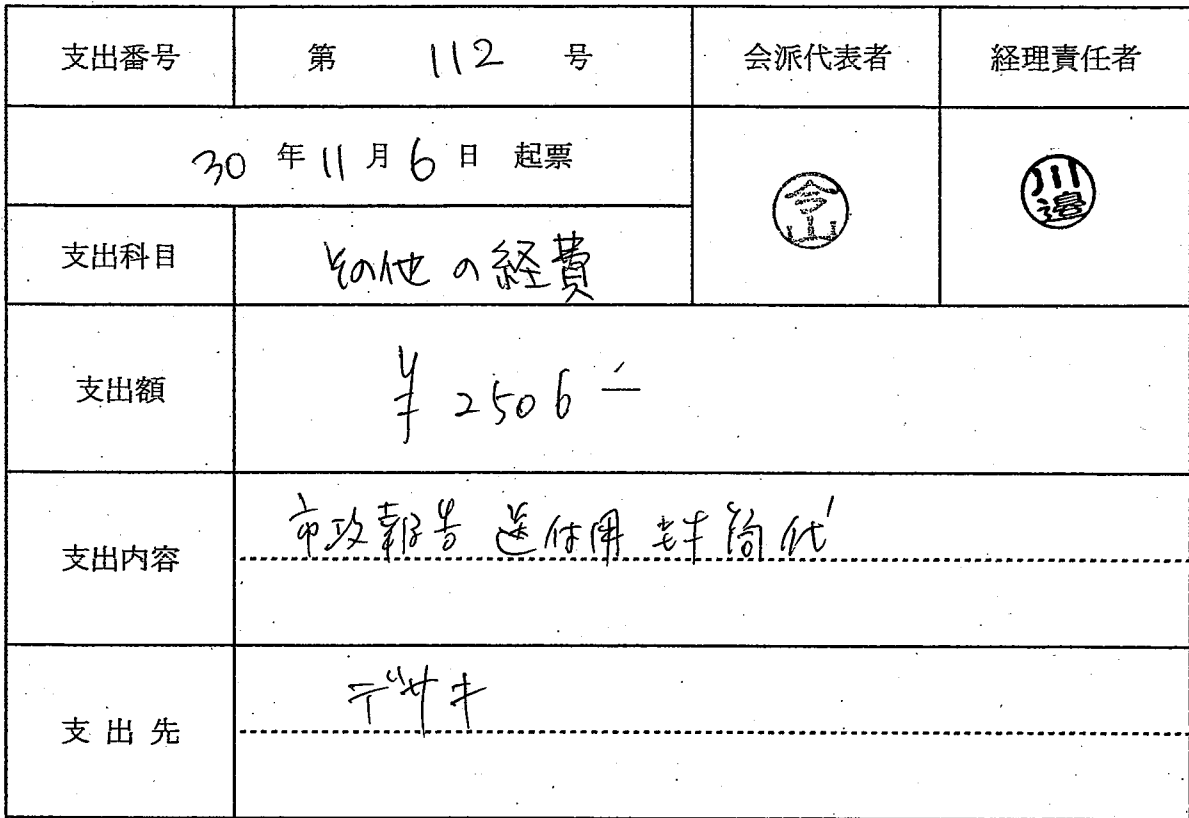 支出番号 第 112 号 会派代表者 経理責任者
30 年 11 月 6 日 起票
今山
川邉
支出科目 その他の経費
支出額 ¥2506-
支出内容 市政報告送付用封筒代
支出先 デサキ